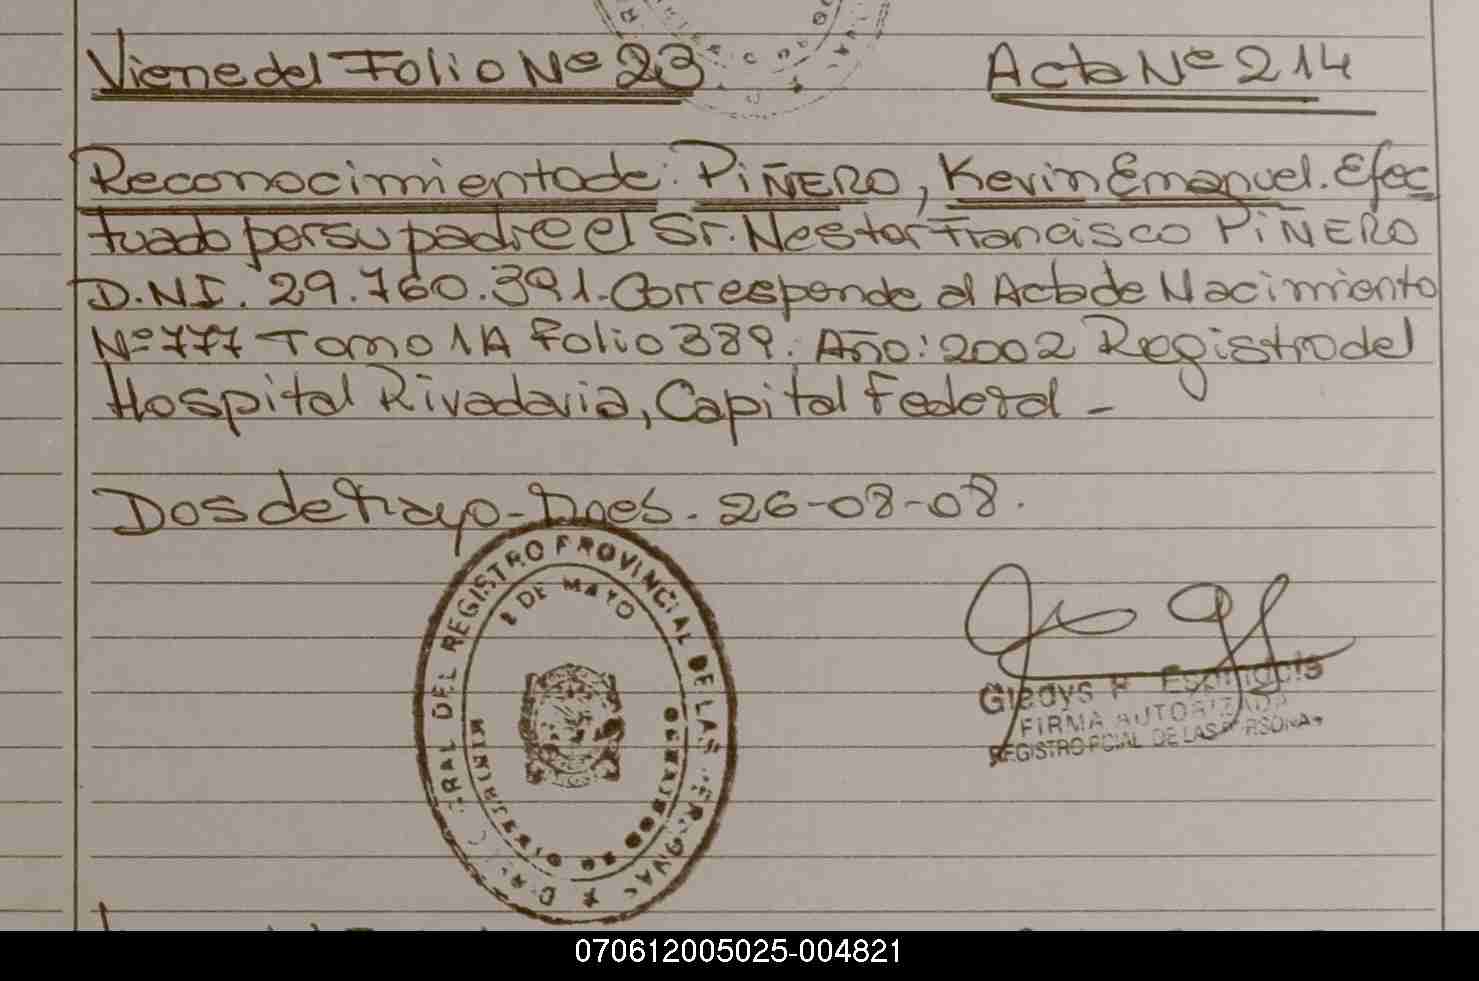 Viene del Folio Nº 23 Acta Nº 214
Reconocimiento de: PIÑERO, Kevin Emanuel. Efec
tuado por su padre el Sr. Nestor Francisco PIÑERO
D.N.I. 29.760.391.- Corresponde al Acta de Nacimiento
Nº 777 Tomo 1A Folio 389. Año: 2002 Registro del
Hospital Rivadavia, Capital Federal -
Dos de Mayo - Mnes. 26-08-08.
GRAL DEL REGISTRO PROVINCIAL DE LAS PERSONAS
2 DE MAYO
Gladys
FIRMA AUTORIZADA
REGISTRO PCIAL DE LAS PERSONAS
070612005025-004821